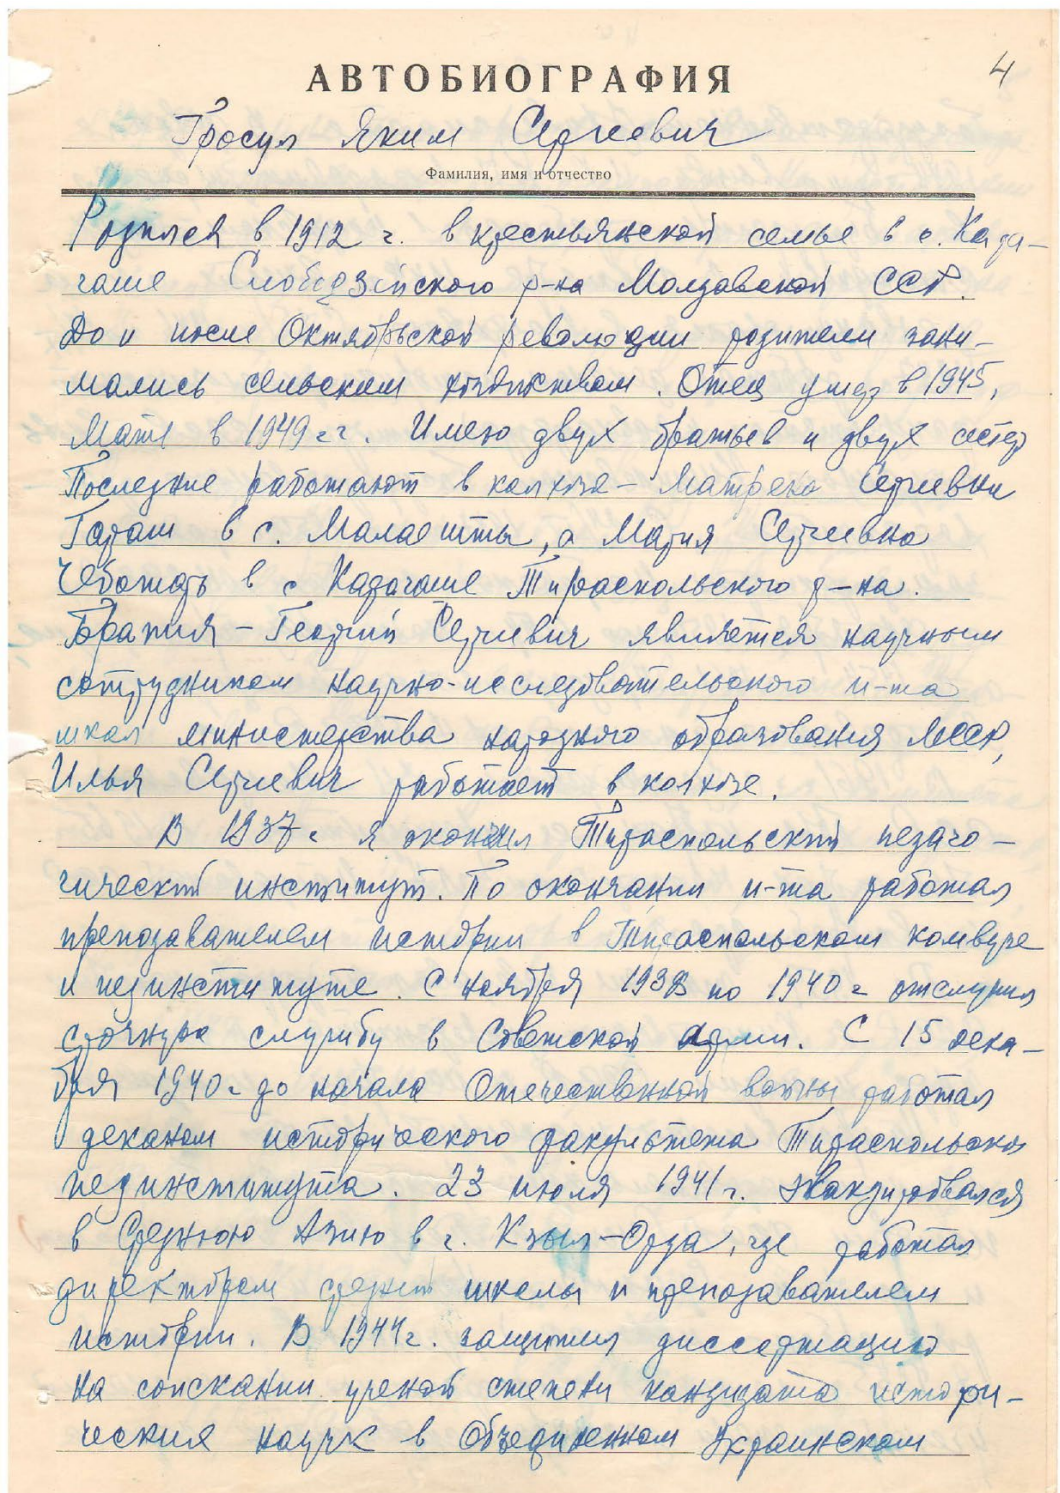 4
АВТОБИОГРАФИЯ
Гросул Яким Сергеевич
Фамилия, имя и отчество
Родился в 1912 г. в крестьянской семье в с. Кара-
гаше Слободзейского р-на Молдавской ССР.
До и после Октябрьской революции родители зани-
мались сельским хозяйством. Отец умер в 1945,
Мать в 1949 г г. Имею двух братьев и двух сестер
Последние работают в колхозе – Матрена Сергеевна
Гараш в с. Малаешты, а Мария Сергеевна
Чеботарь в с Карагаше Тираспольского р-на.
Братья – Георгий Сергеевич является научным
сотрудником научно-исследовательского и-та
школ министерства народного образования МССР,
Илья Сергеевич работает в колхозе.
В 1937 г я окончил Тираспольский педаго-
гический институт. По окончании и-та работал
преподавателем истории в Тираспольском комвузе
и пединституте. С ноября 1938 по 1940 г отслужил
срочную службу в Советской армии. С 15 дека-
бря 1940 г до начала Отечественной войны работал
деканом исторического факультета Тираспольского
пединститута. 23 июля 1941 г. эвакуировался
в Среднюю Азию в г. Кзыл-Орда, где работал
директором средней школы и преподавателем
истории. В 1944 г. защитил диссертацию
на соискании ученой степени кандидата истори-
ческих наук в Объединенном Украинском